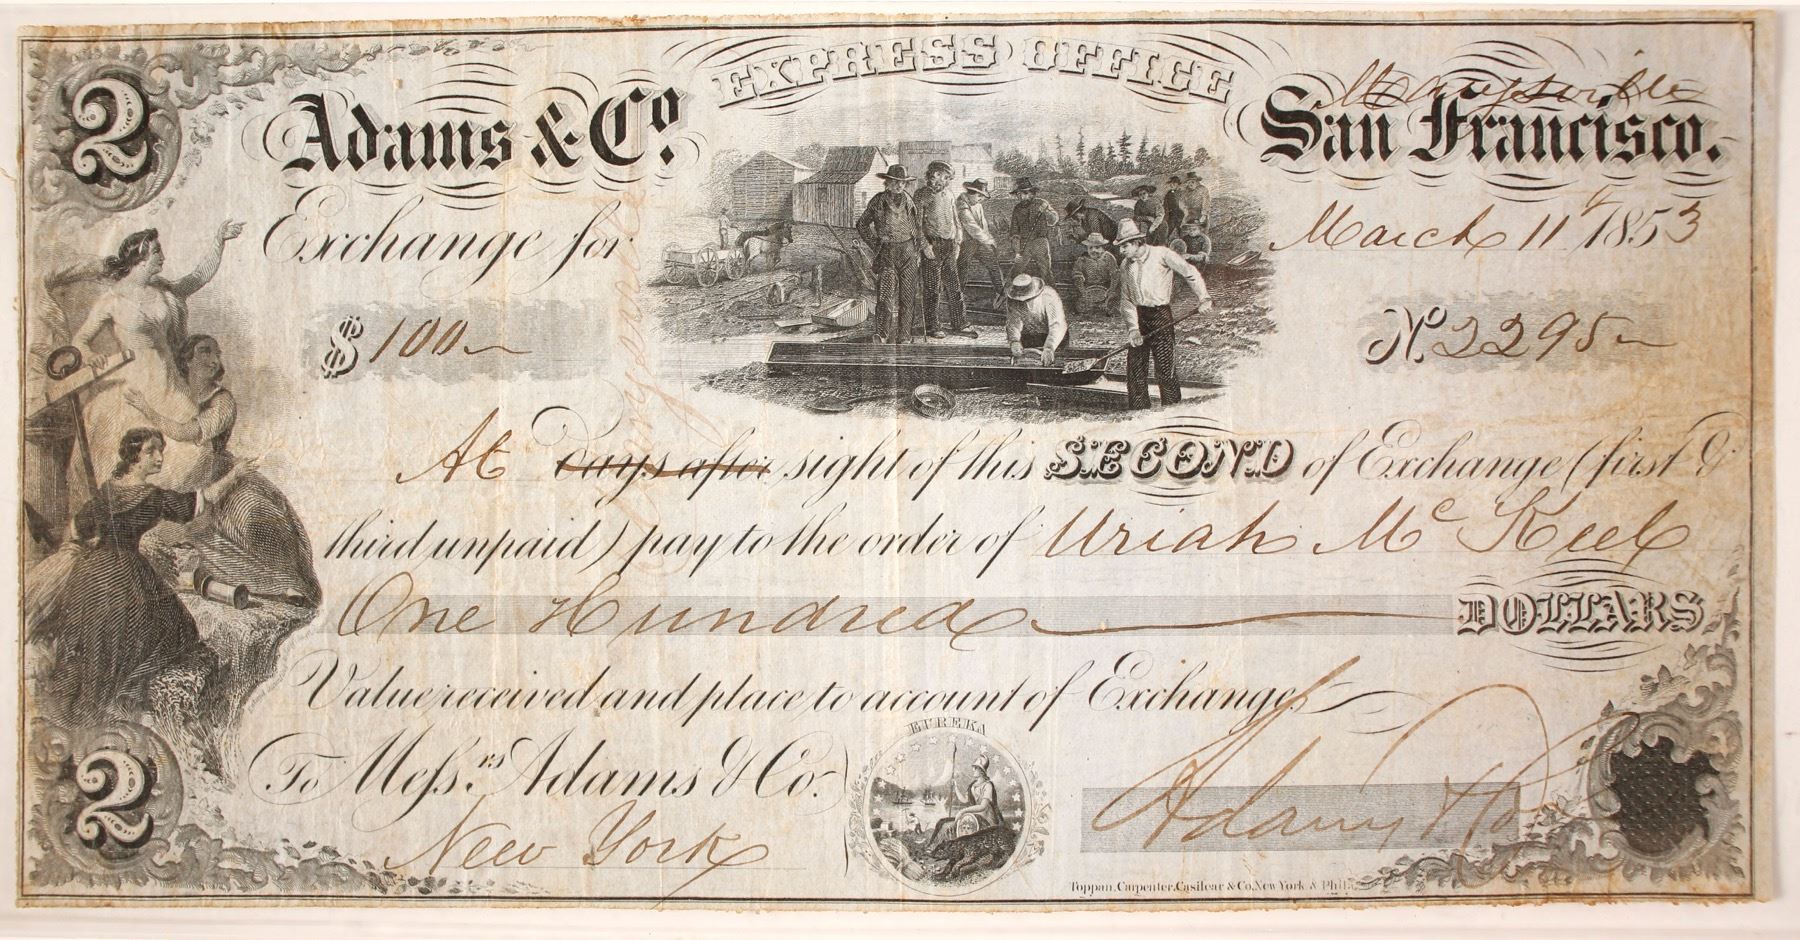 EXPRESS OFFICE
2
Adams & Co.
Marysville
San Francisco.
Exchange for
March 11th 1853
$ 100
No. 2295
At days after sight of this SECOND of Exchange (first &
third unpaid) pay to the order of Uriah Mc Keel
One Hundred DOLLARS
Value received and place to account of Exchange
2
To Messrs. Adams & Co.
New York
EUREKA
Adams & Co
Toppan, Carpenter, Casilear & Co. New York & Phila.